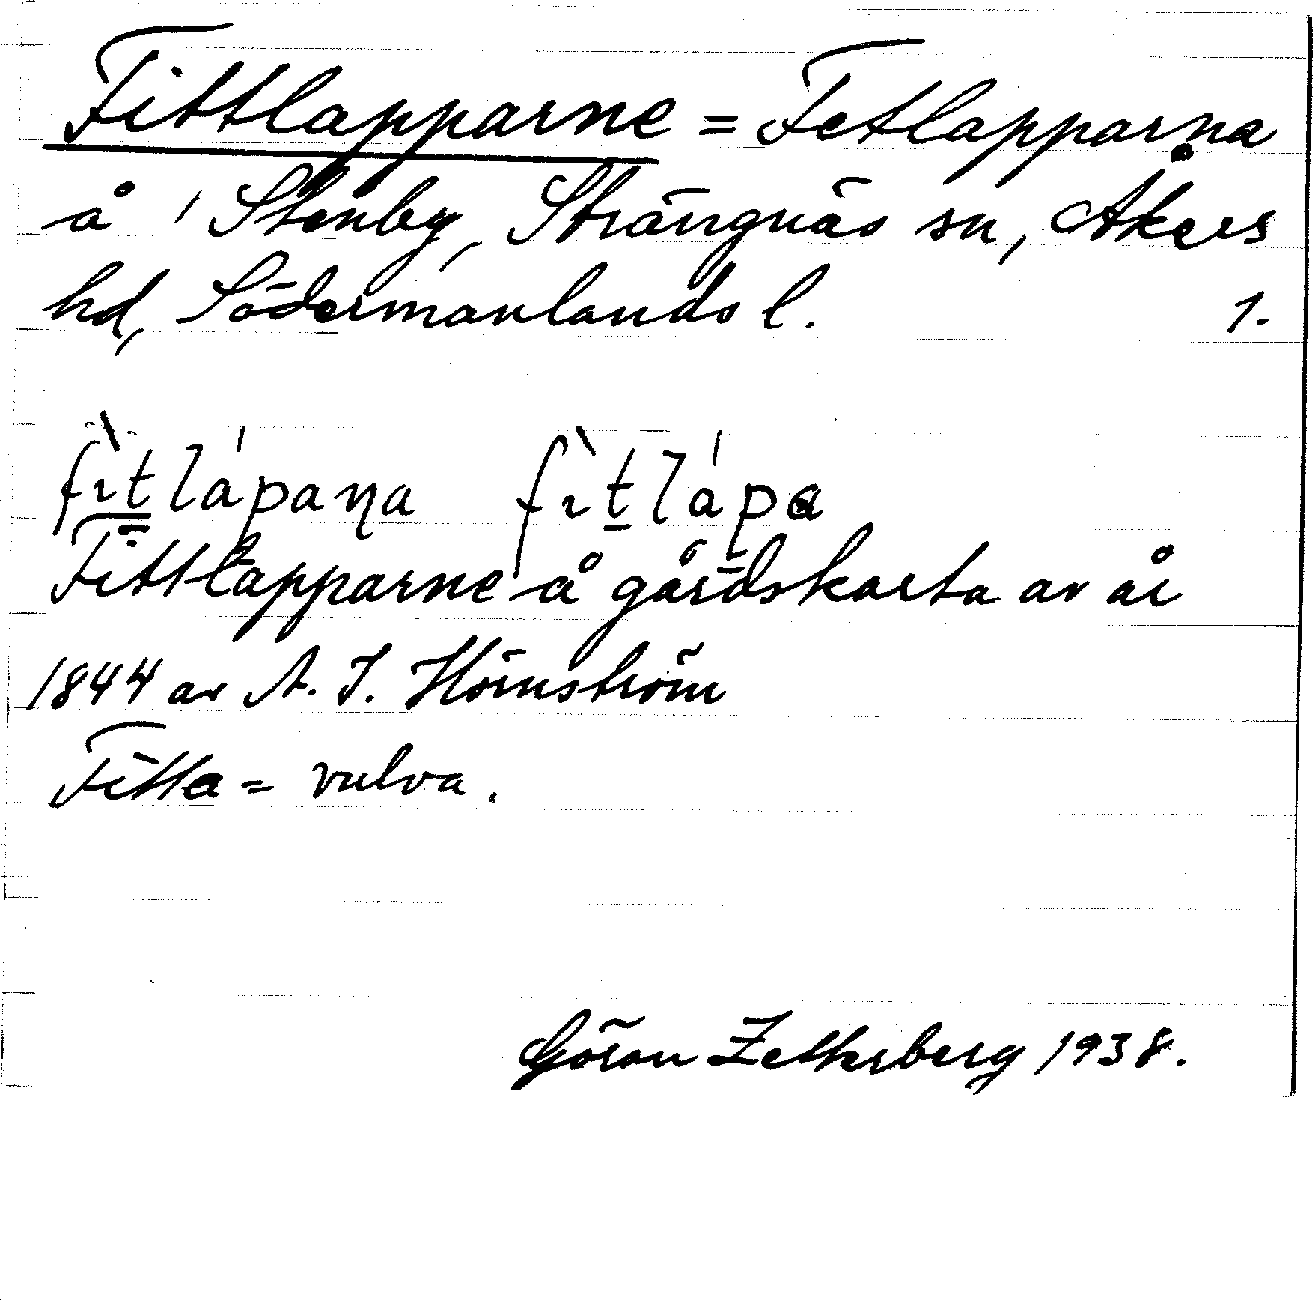 Fittlapparne = Fetlapparna
å Stenby, Strängnäs sn, Åkers
hd, Södermanlands l. 1.
fìtlápaŋa fìtlápa
Fittlapparne å gårdskarta av år
1844 av A. J. Hörnström
Fitta = vulva.
Göran Zetterberg 1938.